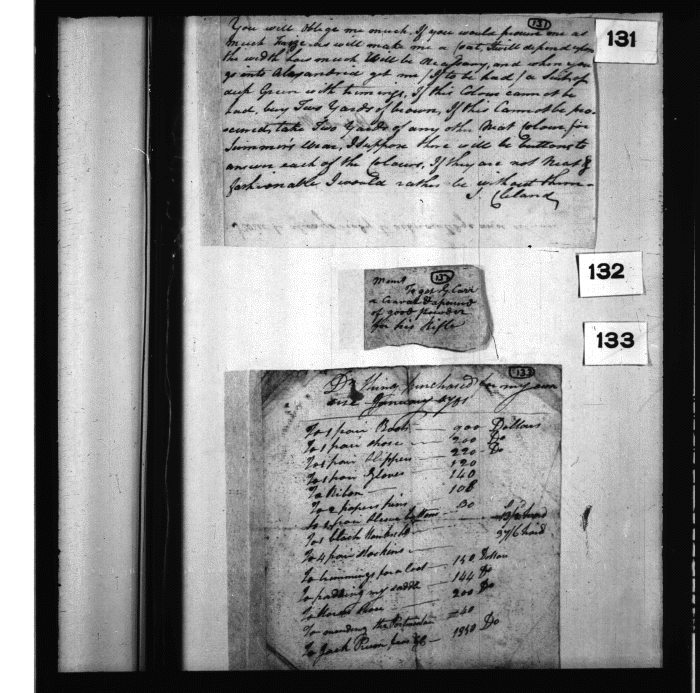 131
131
You will oblige me much, If you would procure me as
much Serge as will make me a Coat, twill depend upon
the width how much will be Necessary, and when you
go into Alexandria get me (If to be had) a
deep Green with trimings, If this Colour cannot be
had, buy Two Yards of brown, If this Cannot be pro-
cured, take Two Yards of any other Neat Colour, for
Summer's Wear, I suppose there will be buttons to
answer each of the Colours, If they are not Neat &
fashionable I would rather be without them-
J. Cleland
132
132
To get G Carr
a Cravat & a pound
of good powder
for his Rifle
133
133
Dr. things purchased for my own
use January 1781
To 1 pair Boots 900 Dollars
To 1 pair shoes 200 Do
To 1 pair Slippers 220 Do
To 1 pair Gloves 120
To Ribon 140
To 2 papers pins 108
To 1 pair Sleeve buttons 30
To 1 black Hankf
To 4 pair Stockins 37/6 hard
To trimmings for a Coat 150 Dollars
To padding my saddle 144 Do
To Horse Shoe 200 Do
To mending the 40
To Jack 1850 Do